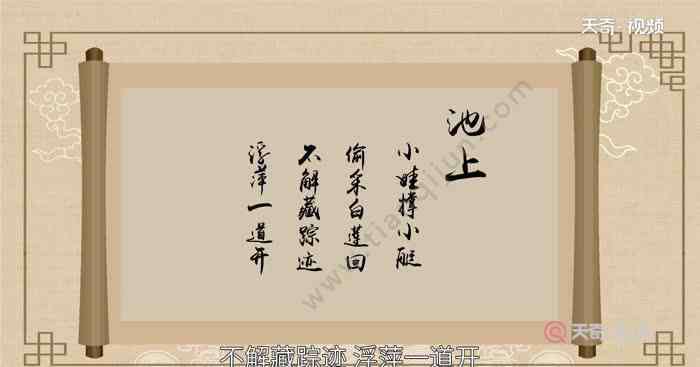 天奇·视频
池上
小娃撑小艇
偷采白莲回
不解藏踪迹
浮萍一道开
www.tianqijun.com
天奇·生活
不解藏踪迹 浮萍一道开